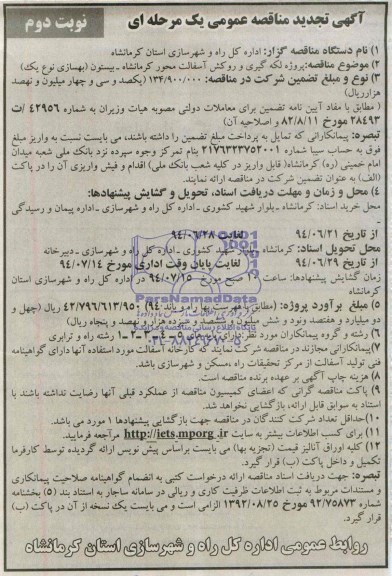 آگهی تجدید مناقصه عمومی یک مرحله ای
نوبت دوم
۱) نام دستگاه مناقصه گزار: اداره کل راه و شهرسازی استان کرمانشاه
۲) موضوع مناقصه: پروژه لکه گیری و روکش آسفالت محور کرمانشاه ـ بیستون (بهسازی نوع یک)
۳) نوع و مبلغ تضمین شرکت در مناقصه: ۱۳۴/۹۰۰/۰۰۰ (یکصد و سی و چهار میلیون و نهصد
هزارریال)
( مطابق با مفاد آیین نامه تضمین برای معاملات دولتی مصوبه هیات وزیران به شماره ۴۲۹۵۶ /ت
۲۸۴۹۳ مورخ ۸۲/۸/۱۱ و اصلاحیه آن)
تبصره: پیمانکارانی که تمایل به پرداخت مبلغ تضمین را داشته باشند، می بایست نسبت به واریز مبلغ
فوق به حساب سیبا شماره ۲۱۷۶۴۲۳۷۵۲۰۰۱ بنام تمرکز وجوه سپرده نزد بانک ملی شعبه میدان
امام خمینی (ره) کرمانشاه( قابل واریز در کلیه شعب بانک ملی) اقدام و فیش واریزی آن را در پاکت
(الف) به عنوان تضمین شرکت در مناقصه ارائه نمایند.
۴) محل و زمان و مهلت دریافت اسناد، تحویل و گشایش پیشنهادها:
محل خرید اسناد: کرمانشاه ـ بلوار شهید کشوری ـ اداره کل راه و شهرسازی ـ اداره پیمان و رسیدگی
از تاریخ ۹۴/۰۶/۲۱ لغایت ۹۴/۰۶/۲۸
محل تحویل اسناد: کرمانشاه ـ بلوار شهید کشوری ـ اداره کل راه و شهرسازی ـ دبیرخانه
از تاریخ ۹۴/۰۶/۲۹ لغایت پایان وقت اداری مورخ ۹۴/۰۷/۱۴
زمان گشایش پیشنهادها: ساعت صبح مورخ ۹۴/۰۷/۱۵ در اداره کل راه و شهرسازی استان
کرمانشاه
۵) مبلغ برآورد پروژه: (مطابق با فهرست بها راه و باند ۹۴) ۴۲/۷۹۶/۶۱۳/۹۵۰ ریال (چهل و
دو میلیارد و هفتصد ونود و شش میلیون و ششصد و سیزده هزار و نهصد و پنجاه ریال)
۶) رشته و گروه پیمانکاران مورد نظر: رشته راه و ترابری
۷) پیمانکارانی مجازند در مناقصه شرکت نمایند که کارخانه آسفالت مورد استفاده آنها دارای گواهینامه
فنی تولید آسفالت از مرکز تحقیقات راه ،مسکن و شهرسازی باشد.
۸) هزینه چاپ آگهی بر عهده برنده مناقصه است.
۹) پاکت مناقصه گرانی که اعضای کمیسیون مناقصه از عملکرد قبلی آنها رضایت نداشته باشند با
استناد به سوابق قابل ارائه، بازگشایی نخواهد شد.
۱۰) حداقل تعداد شرکت کنندگان در مناقصه جهت بازگشایی پیشنهادها ۱ مورد می باشد.
۱۱) برای کسب اطلاعات بیشتر به سایت http://iets.mporg.ir مراجعه فرمایید.
۱۲) کلیه اوراق آنالیز قیمت (تجزیه بها) می بایست براساس پیش نویس ارائه گردیده توسط کارفرما
تکمیل و داخل پاکت (ب) قرار گیرد.
تبصره: جهت دریافت اسناد مناقصه ارائه درخواست کتبی به انضمام گواهینامه صلاحیت پیمانکاری
و مستندات مربوط به ثبت اطلاعات ظرفیت کاری و ریالی در سامانه ساجار به استناد بند (۵) بخشنامه
شماره ۹۲/۷۵۸۷۳ مورخ ۱۳۹۲/۰۸/۲۵ الزامی است و می بایست یک نسخه از آن در پاکت (ب)
قرار گیرد.
روابط عمومی اداره کل راه و شهرسازی استان کرمانشاه